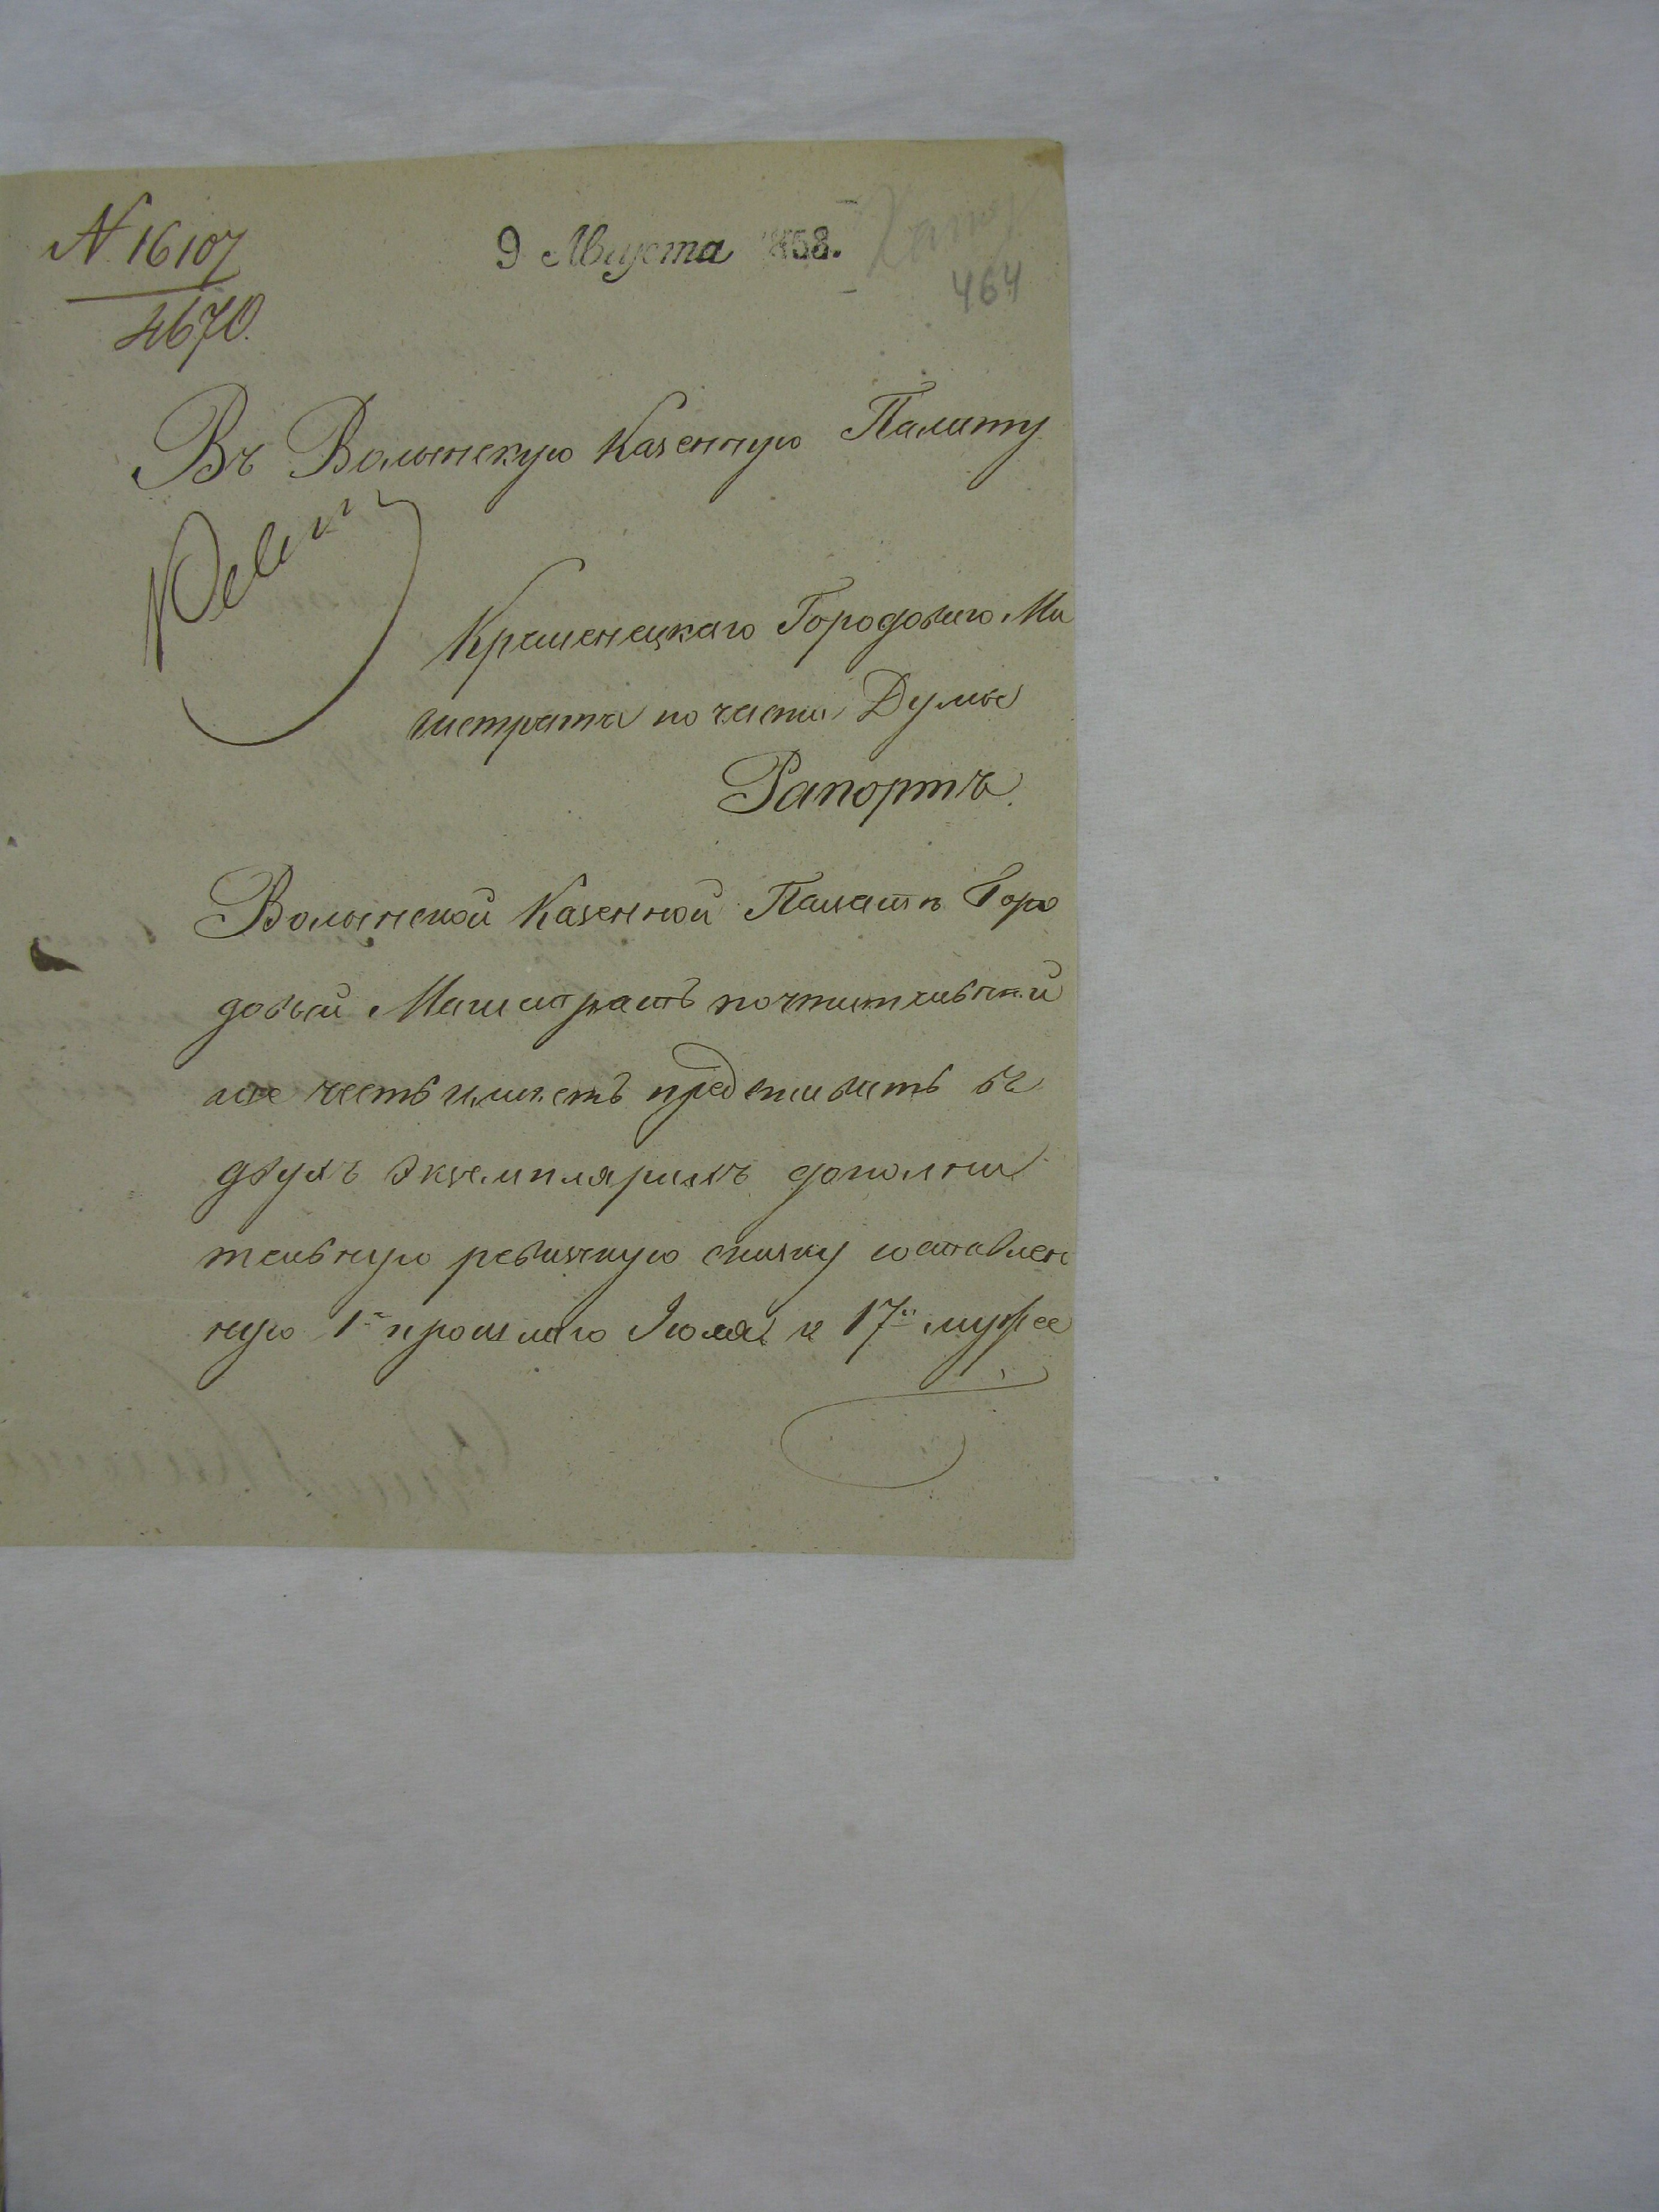 N 16107
4670.
9 Августа 1858.
464
Въ Волынскую Казенную Палату
Кременецкаго Городоваго Ма
гистрата по части Думы
Рапортъ.
Волынской Казенной Палатѣ Горо
довый Магистратъ почтительней
ше честь имѣетъ представить въ
двухъ Экземплярахъ дополни
тельную ревизскую сказку составлен
ную 1го прошлаго Іюля о 17ти муже